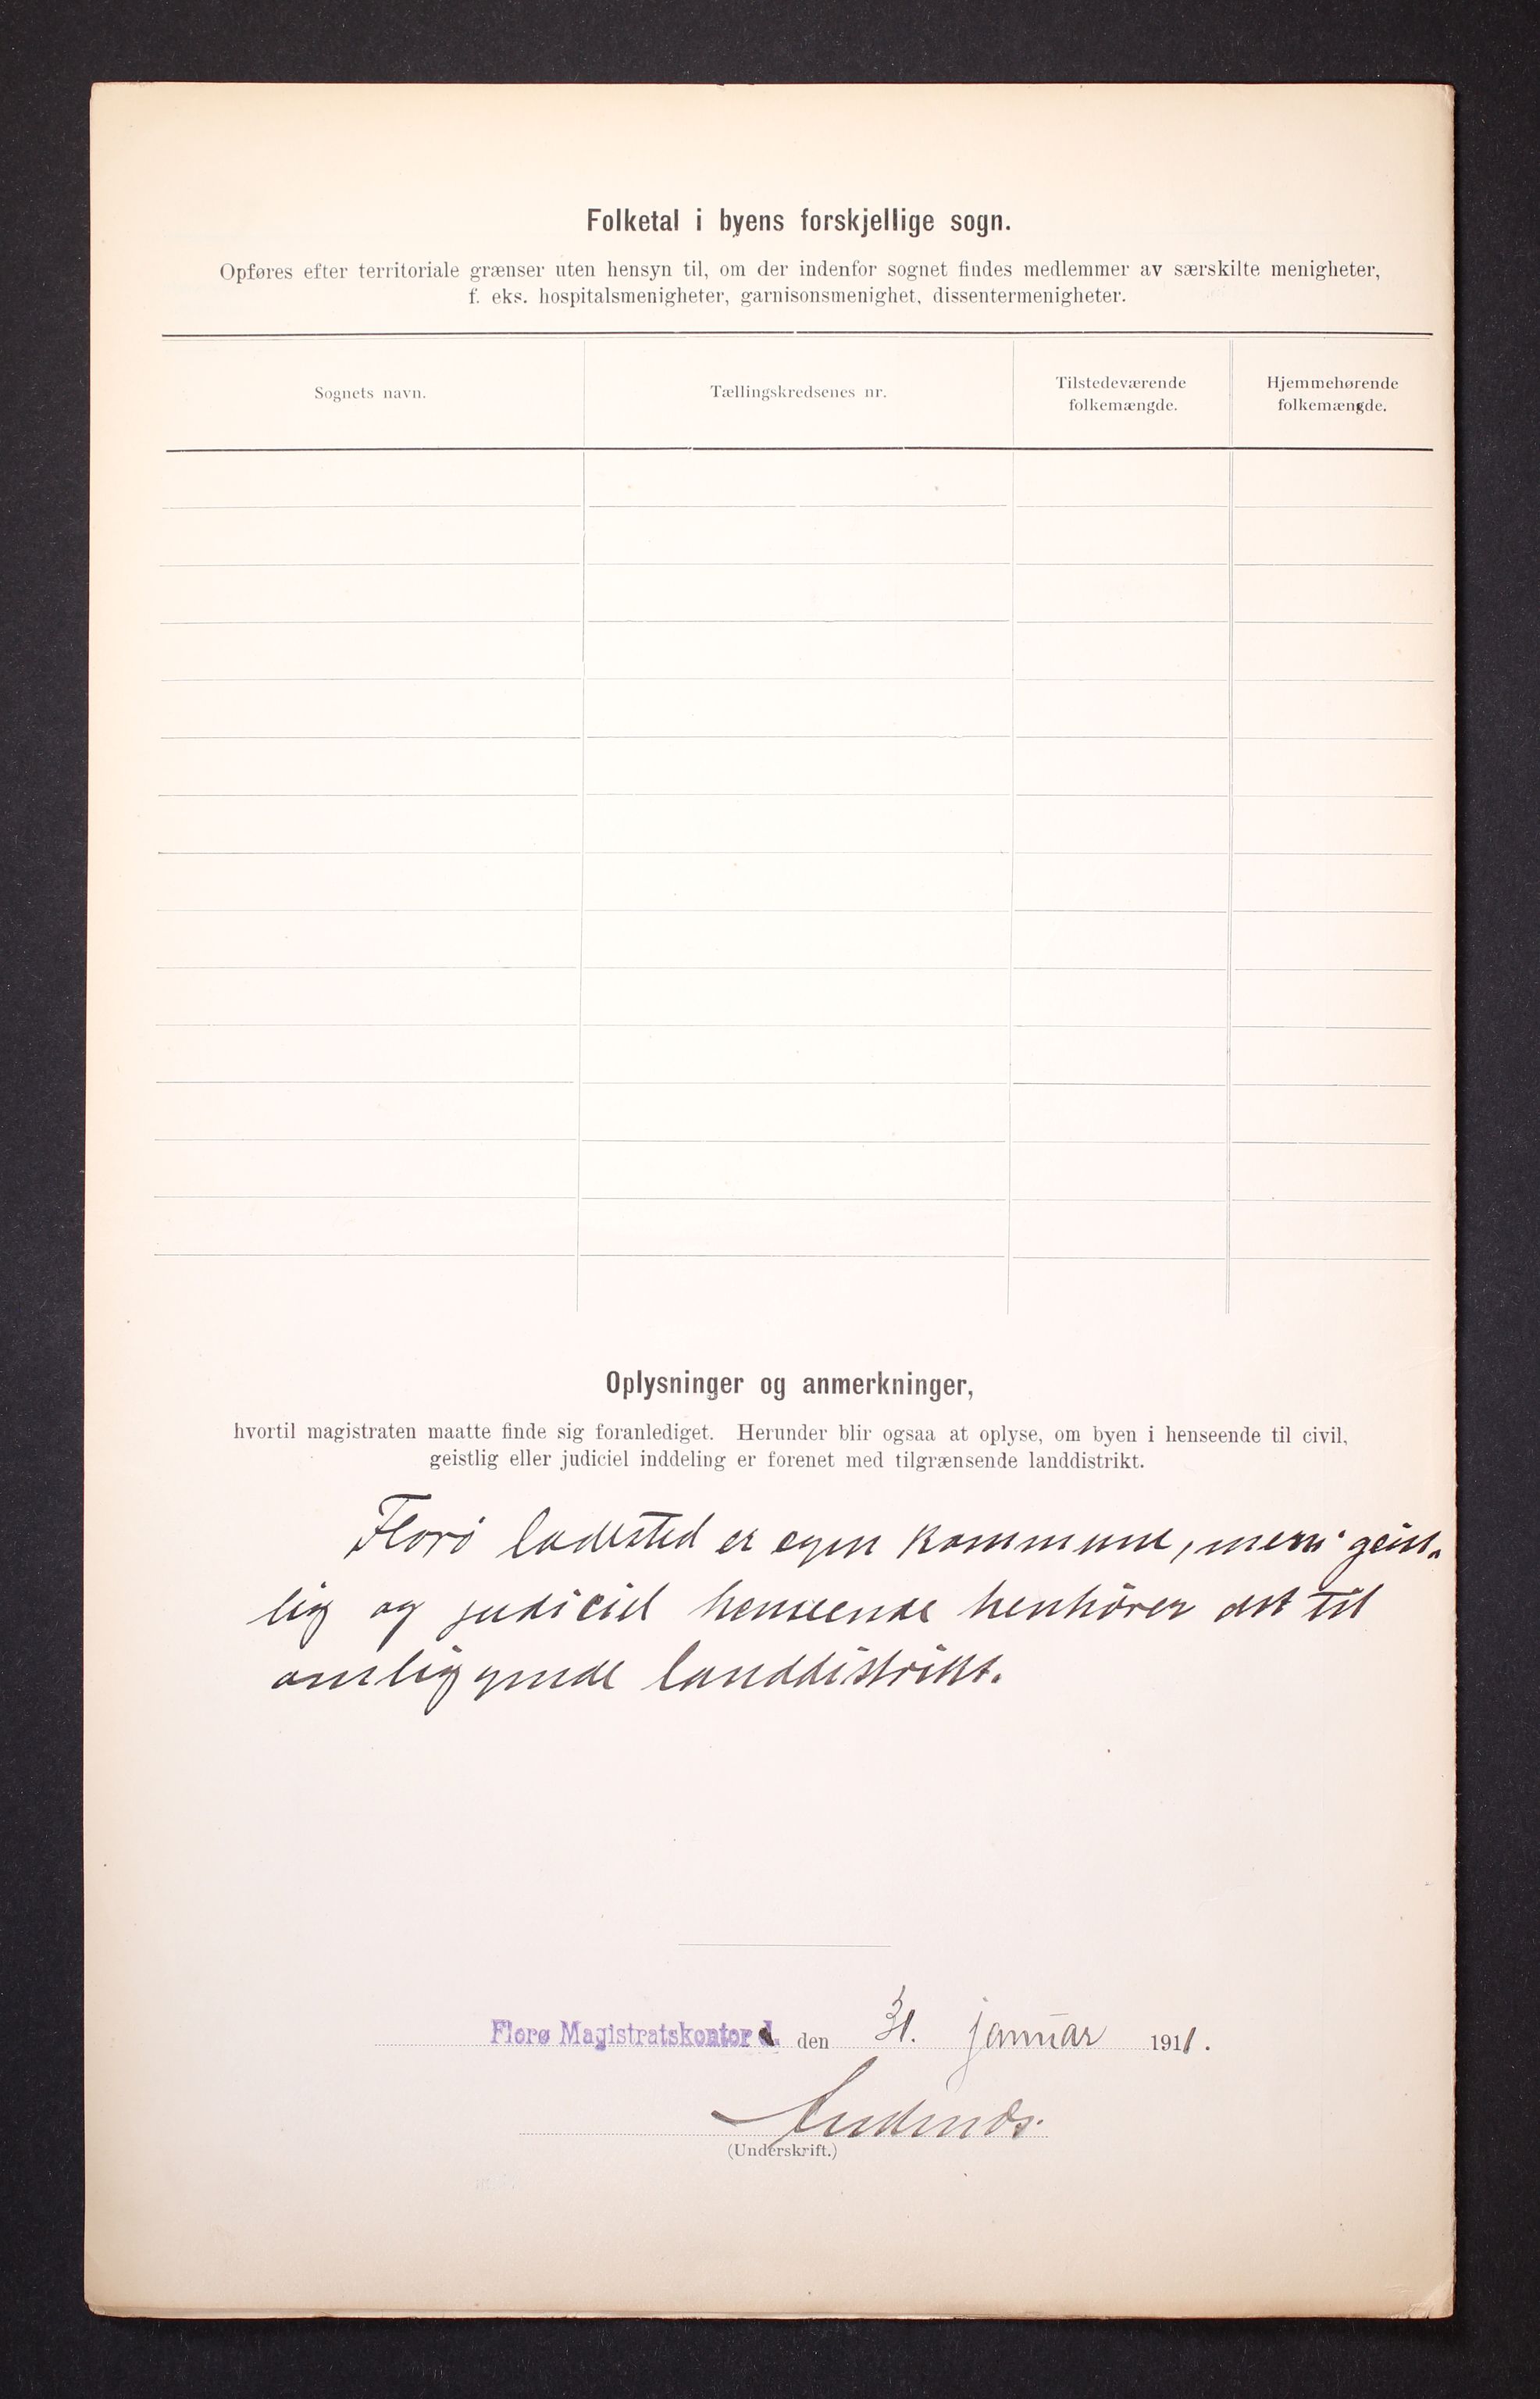 Folketal i byens forskjellige sogn.
Opføres efter territoriale grænser uten hensyn til, om der indenfor sognet findes medlemmer av særskilte menigheter,
f. eks. hospitalsmenigheter, garnisonsmenighet, dissentermenigheter.
Sognets navn. Tællingskredsenes nr. Tilstedeværende folkemængde. Hjemmehørende folkemængde.
Oplysninger og anmerkninger,
hvortil magistraten maatte finde sig foranlediget. Herunder blir ogsaa at oplyse, om byen i henseende til civil,
geistlig eller judiciel inddeling er forenet med tilgrænsende landdistrikt.
Florö ladested er egen kommune, men i geist-
lig og judiciel henseende henhörer det til
omliggende landdistrikt.
Florø Magistratskontor den 31. januar 1911.
(Underskrift.)